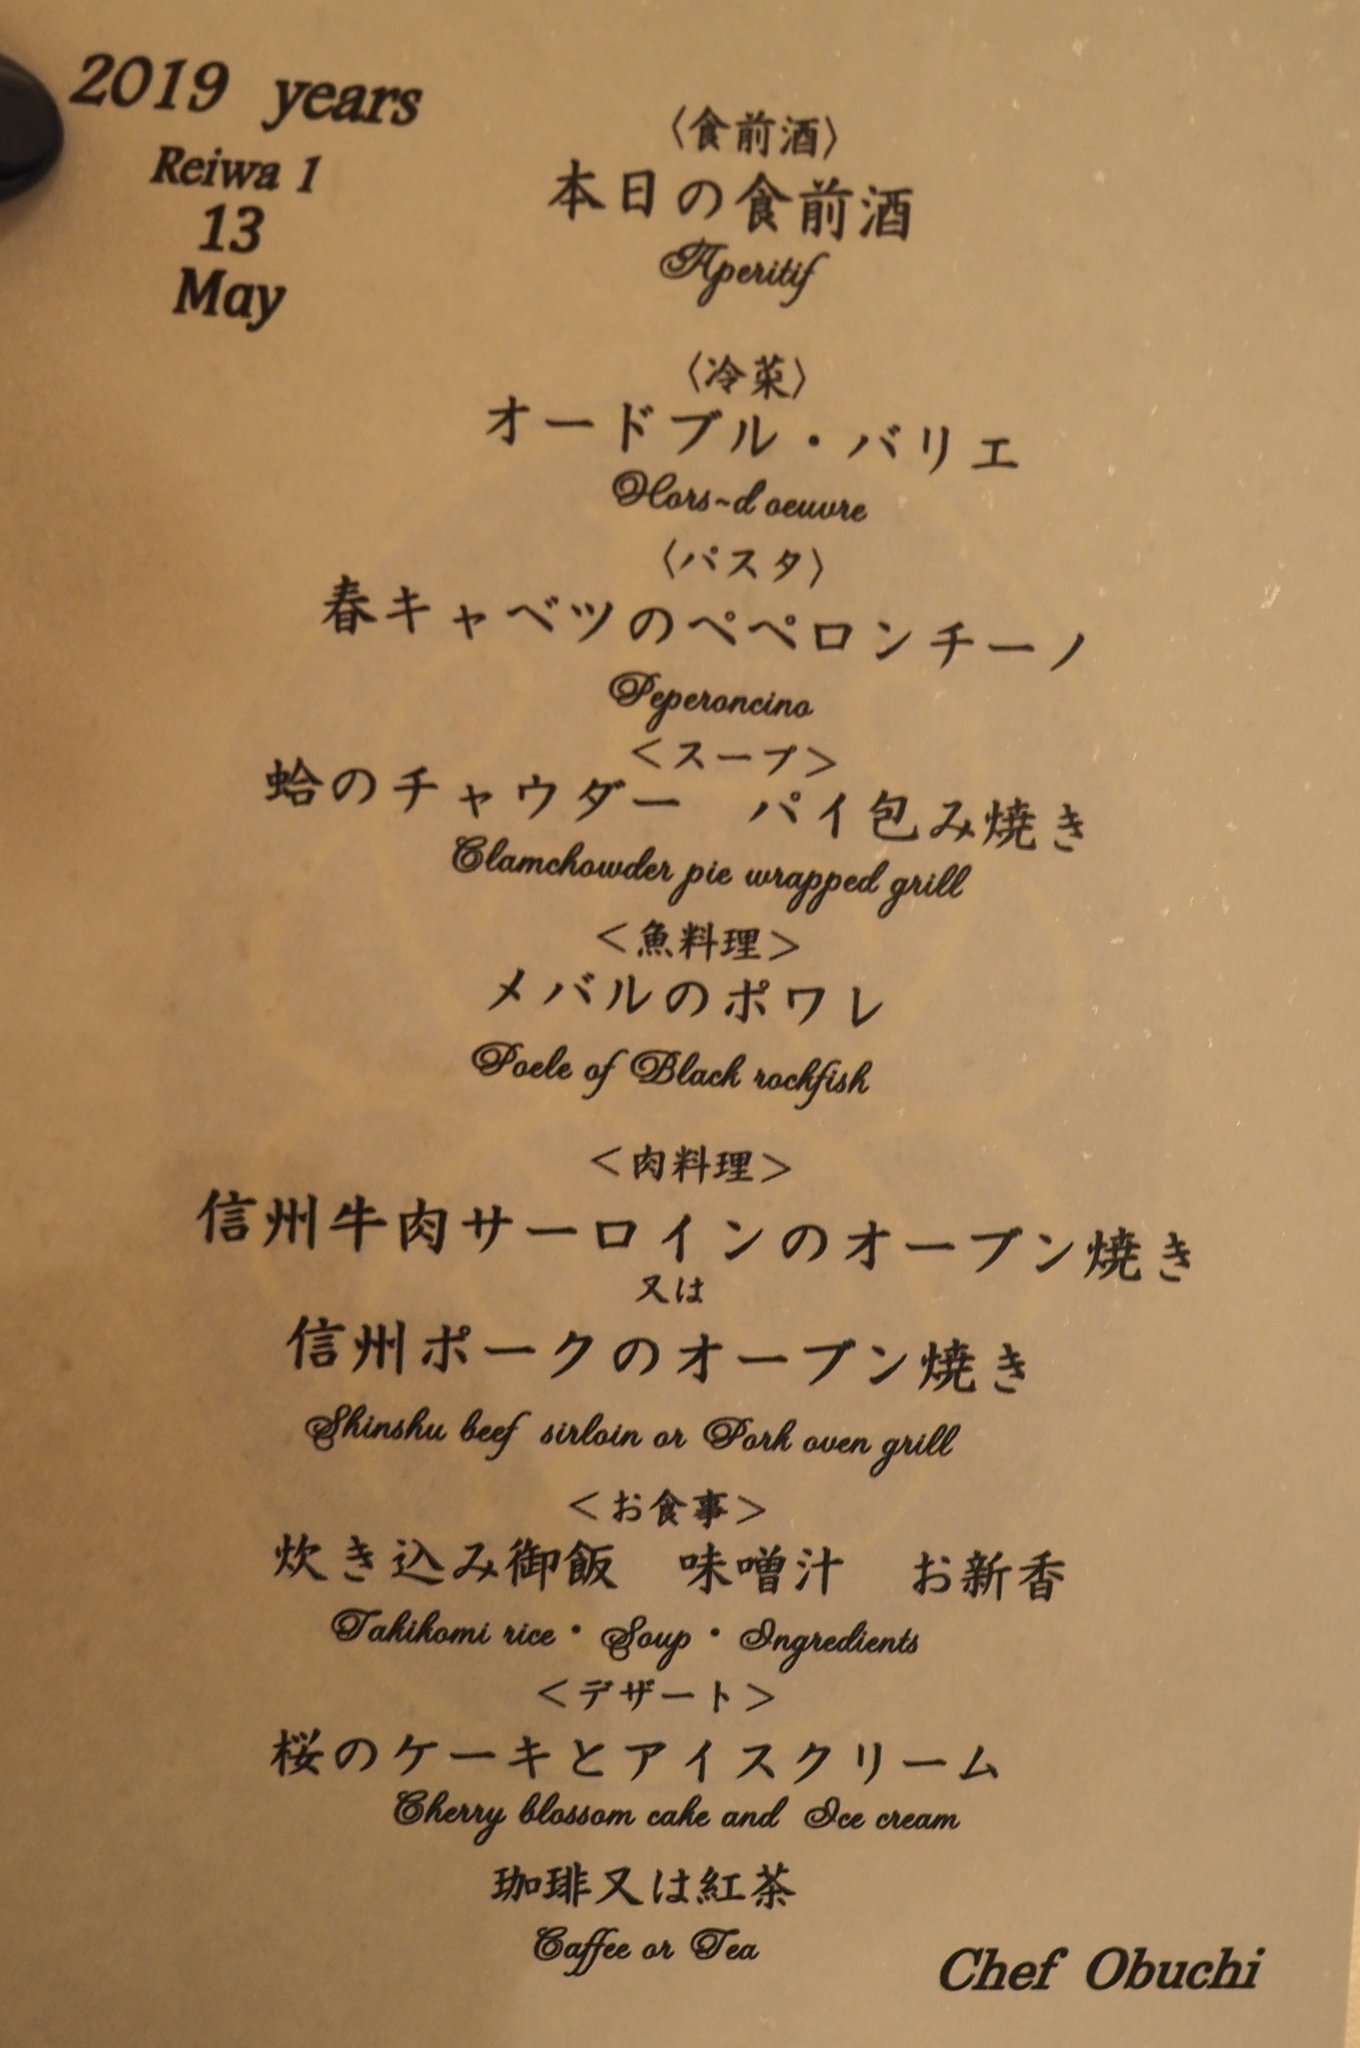 2019 years
Reiwa 1
13
May
〈食前酒〉
本日の食前酒
Aperitif
〈冷菜〉
オードブル・バリエ
Hors~d'oeuvre
〈パスタ〉
春キャベツのペペロンチーノ
Peperoncino
＜スープ＞
蛤のチャウダー　パイ包み焼き
Clamchowder pie wrapped grill
＜魚料理＞
メバルのポワレ
Poele of Black rockfish
＜肉料理＞
信州牛肉サーロインのオーブン焼き
又は
信州ポークのオーブン焼き
Shinshu beef sirloin or Pork oven grill
＜お食事＞
炊き込み御飯　味噌汁　お新香
Takikomi rice・Soup・Ingredients
＜デザート＞
桜のケーキとアイスクリーム
Cherry blossom cake and Ice cream
珈琲又は紅茶
Caffee or Tea
Chef Obuchi